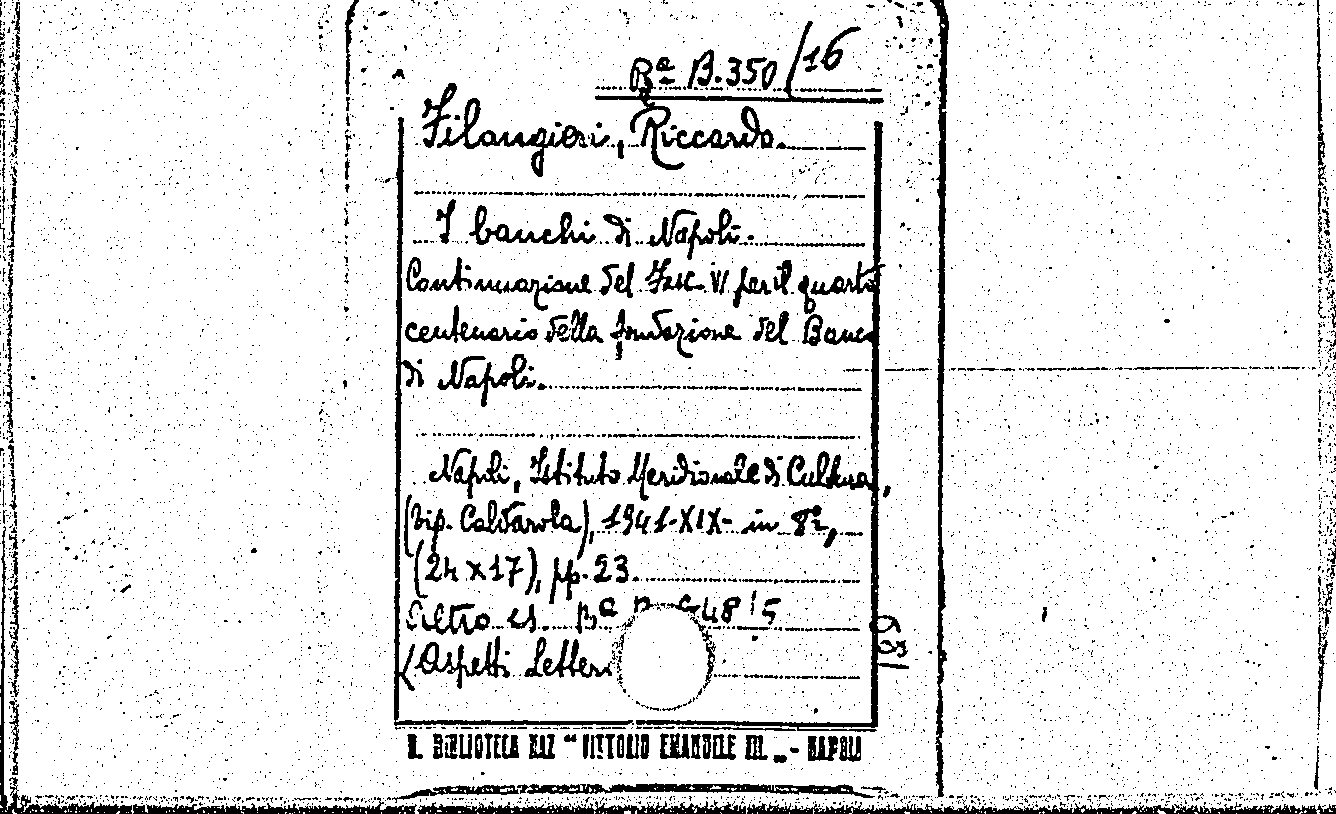 Bª B.350/16
Filangieri, Riccardo.
I banchi di Napoli.
Continuazione del Fasc. VI per il quarto
centenario della fondazione del Banco
di Napoli.
Napoli, Istituto Meridionale di Cultura,
(Tip. Caldarola), 1941-XIX- in 8º,
(24x17), pp. 23.
Altro es. Bª
(Aspetti Letter
R. BIBLIOTECA NAZ "VITTORIO EMANUELE III„ - NAPOLI